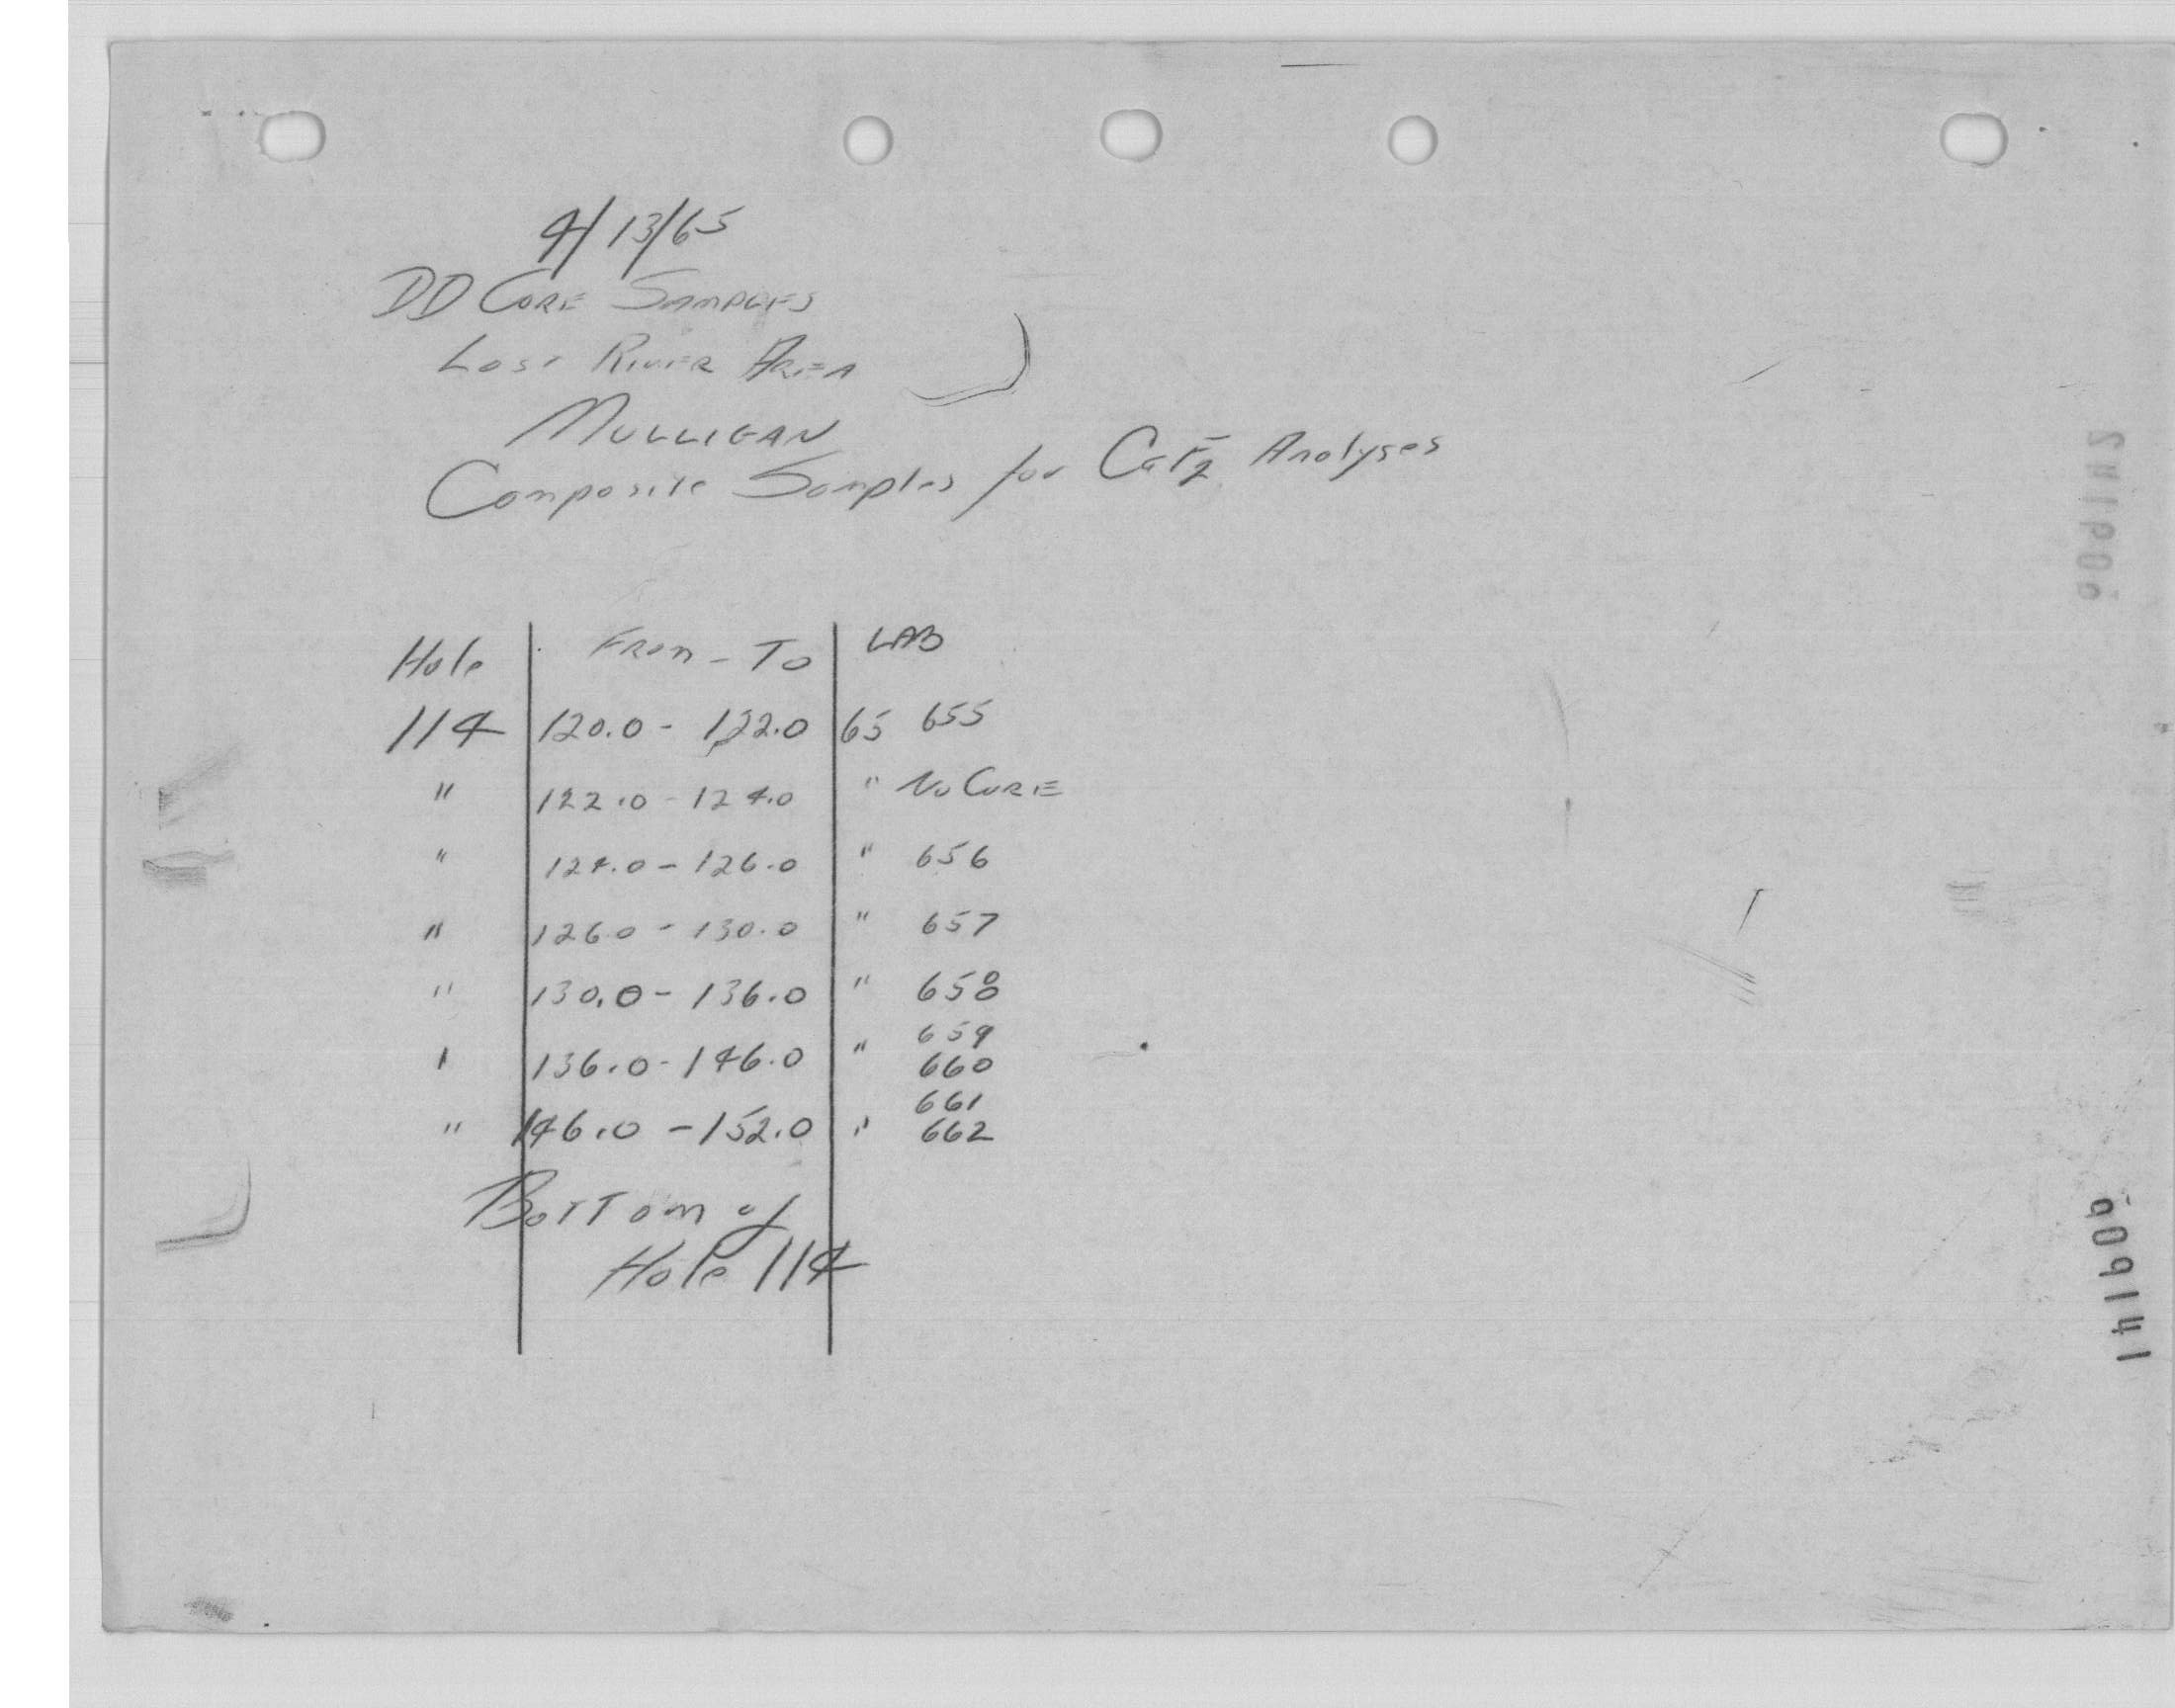 4/13/65
DD CORE SAMPLES
LOST RIVER AREA
MULLIGAN
Composite Samples for CaF2 Analyses
Hole From - To LAB
114 120.0 - 122.0 65 655
" 122.0 - 124.0 " No CORE
" 124.0 - 126.0 " 656
" 126.0 - 130.0 " 657
" 130.0 - 136.0 " 658
" 136.0 - 146.0 " 659
660
" 146.0 - 152.0 " 661
662
BOTTOM of
Hole 114